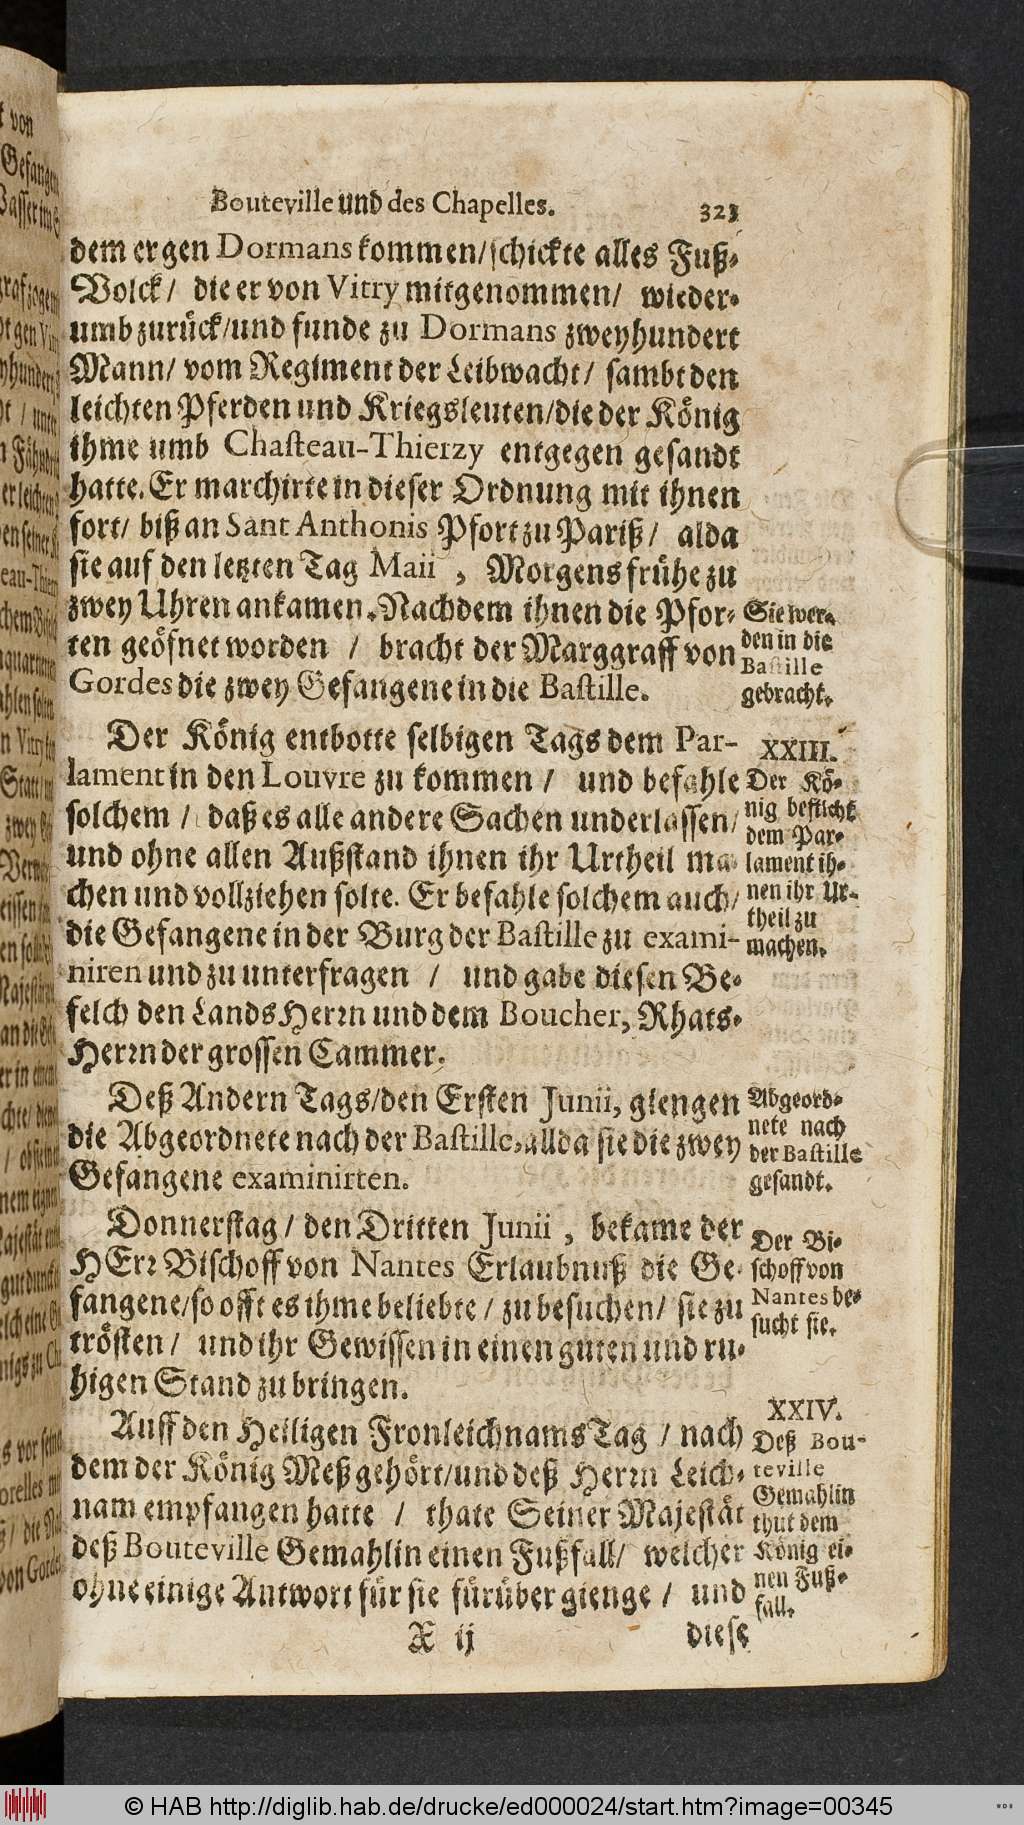 Bouteville und des Chapelles. 323
dem er gen Dormans kommen/schickte alles Fuß-
Volck/ die er von Vitry mitgenommen/ wieder-
umb zurück/und funde zu Dormans zweyhundert
Mann/ vom Regiment der Leibwacht/ sambt den
leichten Pferden und Kriegsleuten/die der König
ihme umb Chasteau-Thierzy entgegen gesandt
hatte. Er marchirte in dieser Ordnung mit ihnen
fort/ biß an Sant Anthonis Pfort zu Pariß/ alda
sie auf den letzten Tag Maii, Morgens frühe zu
zwey Uhren ankamen. Nachdem ihnen die Pfor-
ten geöfnet worden / bracht der Marggraff von
Gordes die zwey Gefangene in die Bastille.
Sie wer-
den in die
Bastille
gebracht.
Der König entbotte selbigen Tags dem Par-
lament in den Louvre zu kommen / und befahle
solchem / daß es alle andere Sachen underlassen/
und ohne allen Außstand ihnen ihr Urtheil ma-
chen und vollziehen solte. Er befahle solchem auch/
die Gefangene in der Burg der Bastille zu exami-
niren und zu unterfragen / und gabe diesen Be-
felch den Lands Herrn und dem Boucher, Rhats-
Herrn der grossen Cammer.
XXIII.
Der Kö-
nig befiehlt
dem Par-
lament ih-
nen ihr Ur-
theil zu
machen.
Deß Andern Tags/den Ersten Junii, giengen
die Abgeordnete nach der Bastille, allda sie die zwey
Gefangene examinirten.
Abgeord-
nete nach
der Bastille
gesandt.
Donnerstag / den Dritten Junii, bekame der
HErr Bischoff von Nantes Erlaubnuß die Ge-
fangene/so offt es ihme beliebte / zu besuchen/ sie zu
trösten/ und ihr Gewissen in einen guten und ru-
higen Stand zu bringen.
Der Bi-
schoff von
Nantes be-
sucht sie.
Auff den Heiligen Fronleichnams Tag / nach
dem der König Meß gehört/und deß Herrn Leich-
nam empfangen hatte / thate Seiner Majestät
deß Bouteville Gemahlin einen Fußfall/ welcher
ohne einige Antwort für sie fürüber gienge / und
XXIV.
Deß Bou-
teville
Gemahlin
thut dem
König ei-
nen Fuß-
fall.
X ij diese
© HAB http://diglib.hab.de/drucke/ed000024/start.htm?image=00345